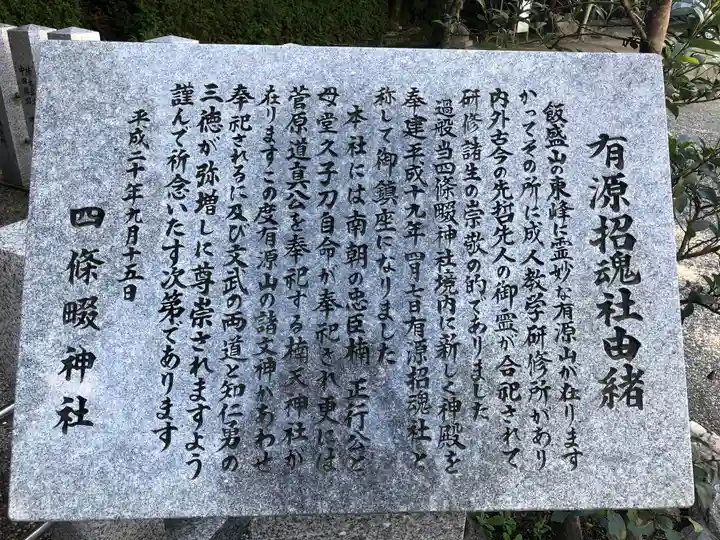 有源招魂社由緒
飯盛山の東峰に霊妙な有源山が在ります
かつてその所に成人教学研修所があり
内外古今の先哲先人の御霊が合祀されて
研修諸生の崇敬の的でありました
過般当四條畷神社境内に新しく神殿を
奉建平成十九年四月七日有源招魂社と
称して御鎮座になりました
本社には南朝の忠臣楠 正行公と
母堂久子刀自命が奉祀され更には
菅原道真公を奉祀する楠天神社が
在りますこの度有源山の諸文神があわせ
奉祀されるに及び文武の両道と知仁勇の
三徳が弥増しに尊崇されますよう
謹んで祈念いたす次第であります
平成二十年九月十五日
四條畷神社